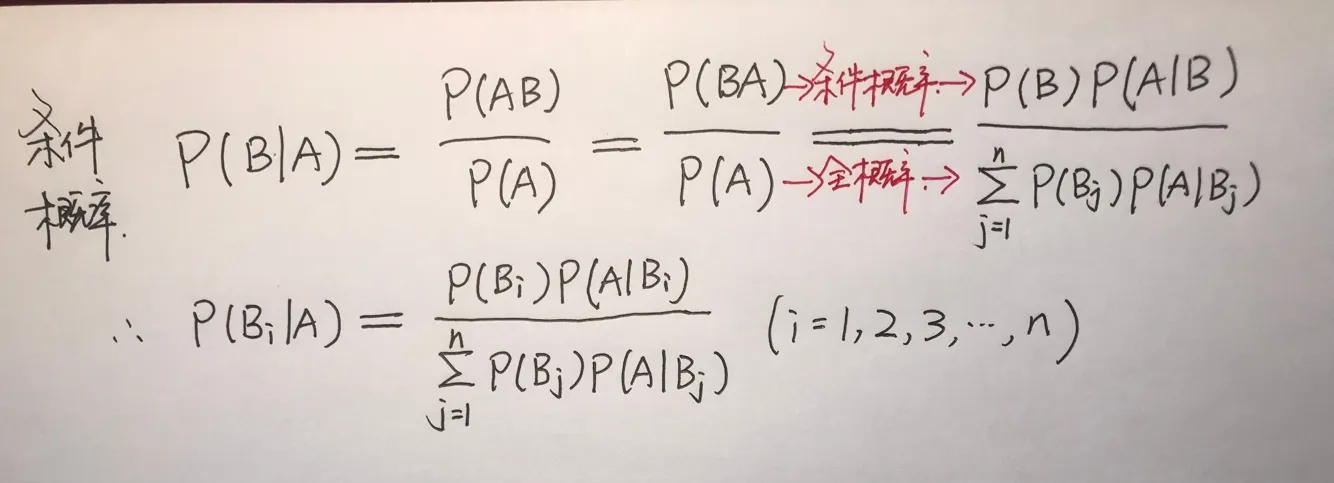 条件概率. P(B|A) = P(AB)/P(A) = P(BA)/P(A) →条件概率→ →全概率→ P(B)P(A|B)/∑_{j=1}^{n} P(B_j)P(A|B_j)
∴ P(B_i|A) = P(B_i)P(A|B_i)/∑_{j=1}^{n} P(B_j)P(A|B_j) (i=1,2,3,…,n)